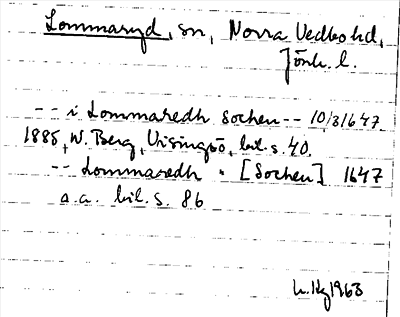 Lommaryd, sn, Norra Vedbo hd,
Jönk. l.
-- i Lommaredh sochen -- 10/3 1647
1885, W. Berg, Visingsö, bil. s. 40.
-- Lommaredh " [Sochen] 1647
a.a. bil. s. 86
1963